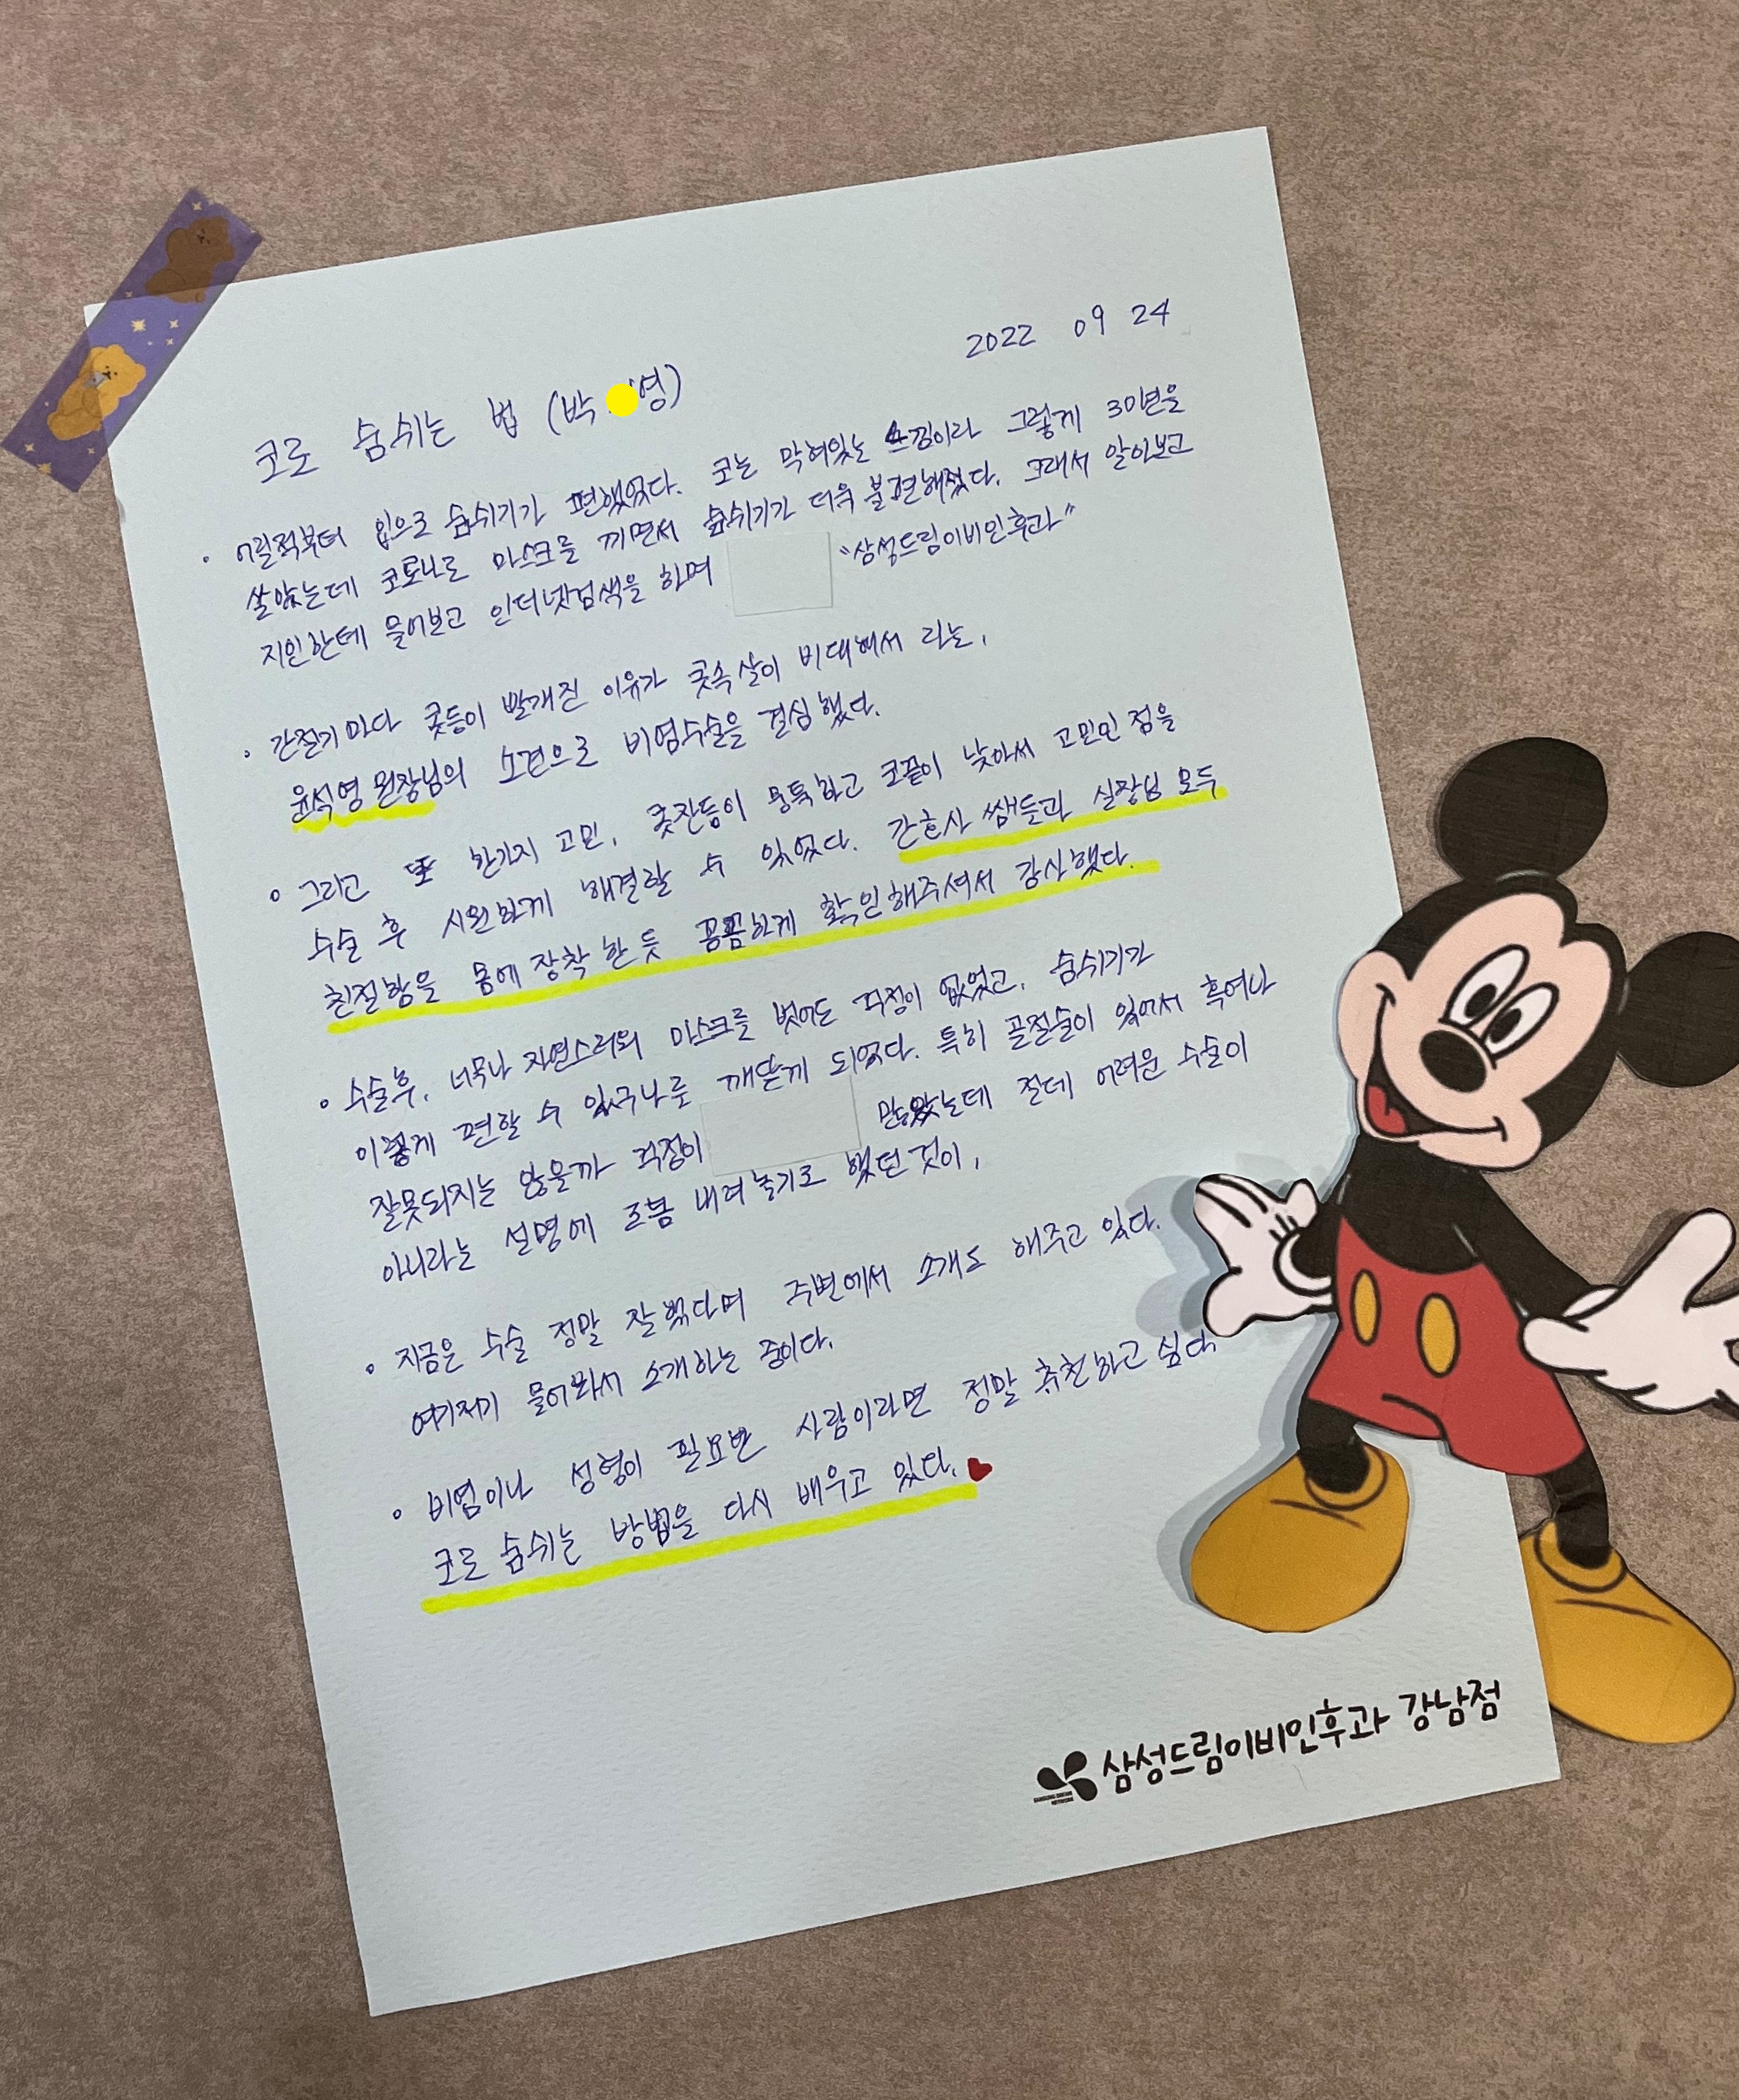 2022 09 24
코로 숨쉬는 법 (박 영)
· 어릴적부터 입으로 숨쉬기가 편했었다. 코는 막혀있는 느낌이라 그렇게 30년을
살았는데 코로나로 마스크를 끼면서 숨쉬기가 더욱 불편해졌다. 그래서 알아보고
지인한테 물어보고 인터넷검색을 하며 "삼성드림이비인후과"
· 간절기마다 콧등이 빨개진 이유가 콧속살이 비대해서 라는,
윤석영 원장님의 소견으로 비염수술을 결심했다.
· 그리고 또 한가지 고민, 콧잔등이 뭉툭하고 코끝이 낮아서 고민인 점을
수술 후 시원하게 해결할 수 있었다. 간호사 쌤들과 실장님 모두
친절함을 몸에 장착한 듯 꼼꼼하게 확인해주셔서 감사했다.
· 수술후, 너무나 자연스러워 마스크를 벗어도 걱정이 없었고, 숨쉬기가
이렇게 편할 수 있구나로 깨닫게 되었다. 특히 골절술이 있어서 혹여나
잘못되지는 않을까 걱정이 많았는데 절데 어려운 수술이
아니라는 설명에 조봄 내려놓기로 했던것이,
· 지금은 수술 정말 잘했다며 주변에서 소개도 해주고 있다.
여기저기 물어와서 소개하는 중이다.
· 비염이나 성형이 필요한 사람이라면 정말 추천하고 싶다
코로 숨쉬는 방법을 다시 배우고 있다.
삼성드림이비인후과 강남점